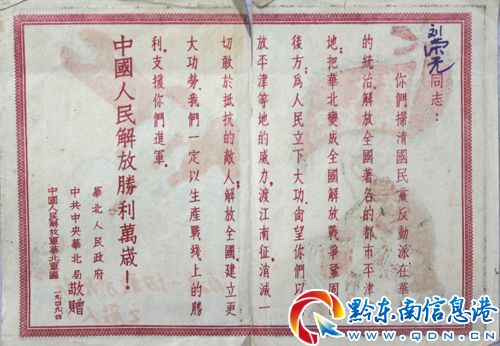 刘荣元同志：
你們掃清國民黨反動派在華
的統治，解放全國著名的都市平津
地，把華北變成全國解放戰爭鞏固
後方，為人民立下大功。尚望你們以
放平津等地的威力，渡江南征，消滅一
切敢於抵抗的敵人，解放全國，建立更
大功勞。我們一定以生產戰綫上的勝
利，支援你們進軍。
中國人民解放勝利萬歲！
華北人民政府
中共中央華北局
中國人民解放軍華北軍區
敬贈
一九四九·四
黔东南信息港
WWW.QDN.CN